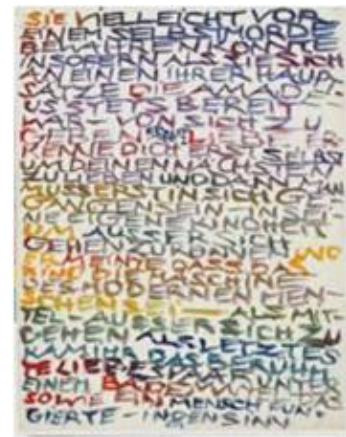 SIE VIELLEICHT VOR
EINEM SELBSTMORDE
BEWAHREN KONNTE
INSOFERN ALS SIE SICH
AN EINEN IHRER HAUP
SÄTZE DIE AMAD
US STETS BEREIT
WAR - VON SICH ZU
GEBEN
KENNE DICH ERST SELBST
UM DEINEN NÄCHSTEN
ZU LIEBEN UND DANN MAN
MUSS ERST IN SICH GE
GANGEN SEIN IN
UM AUSSER SICH
GEHEN ZU KÖNNEN UND
ER MEINTE DASS DAS
DES MODERNEN MEN-
SCHEN SEI - ALS MIT-
TEL - AUSSER SICH ZU
GEHEN ALS LETZTES
KAM IHR DAS BERÜHM
TE LIEBESPAAR
EINEM BADEZIMMER UNTEN
SOWIE EIN MENSCH FUN-
GIERTE - IN DEN SINN